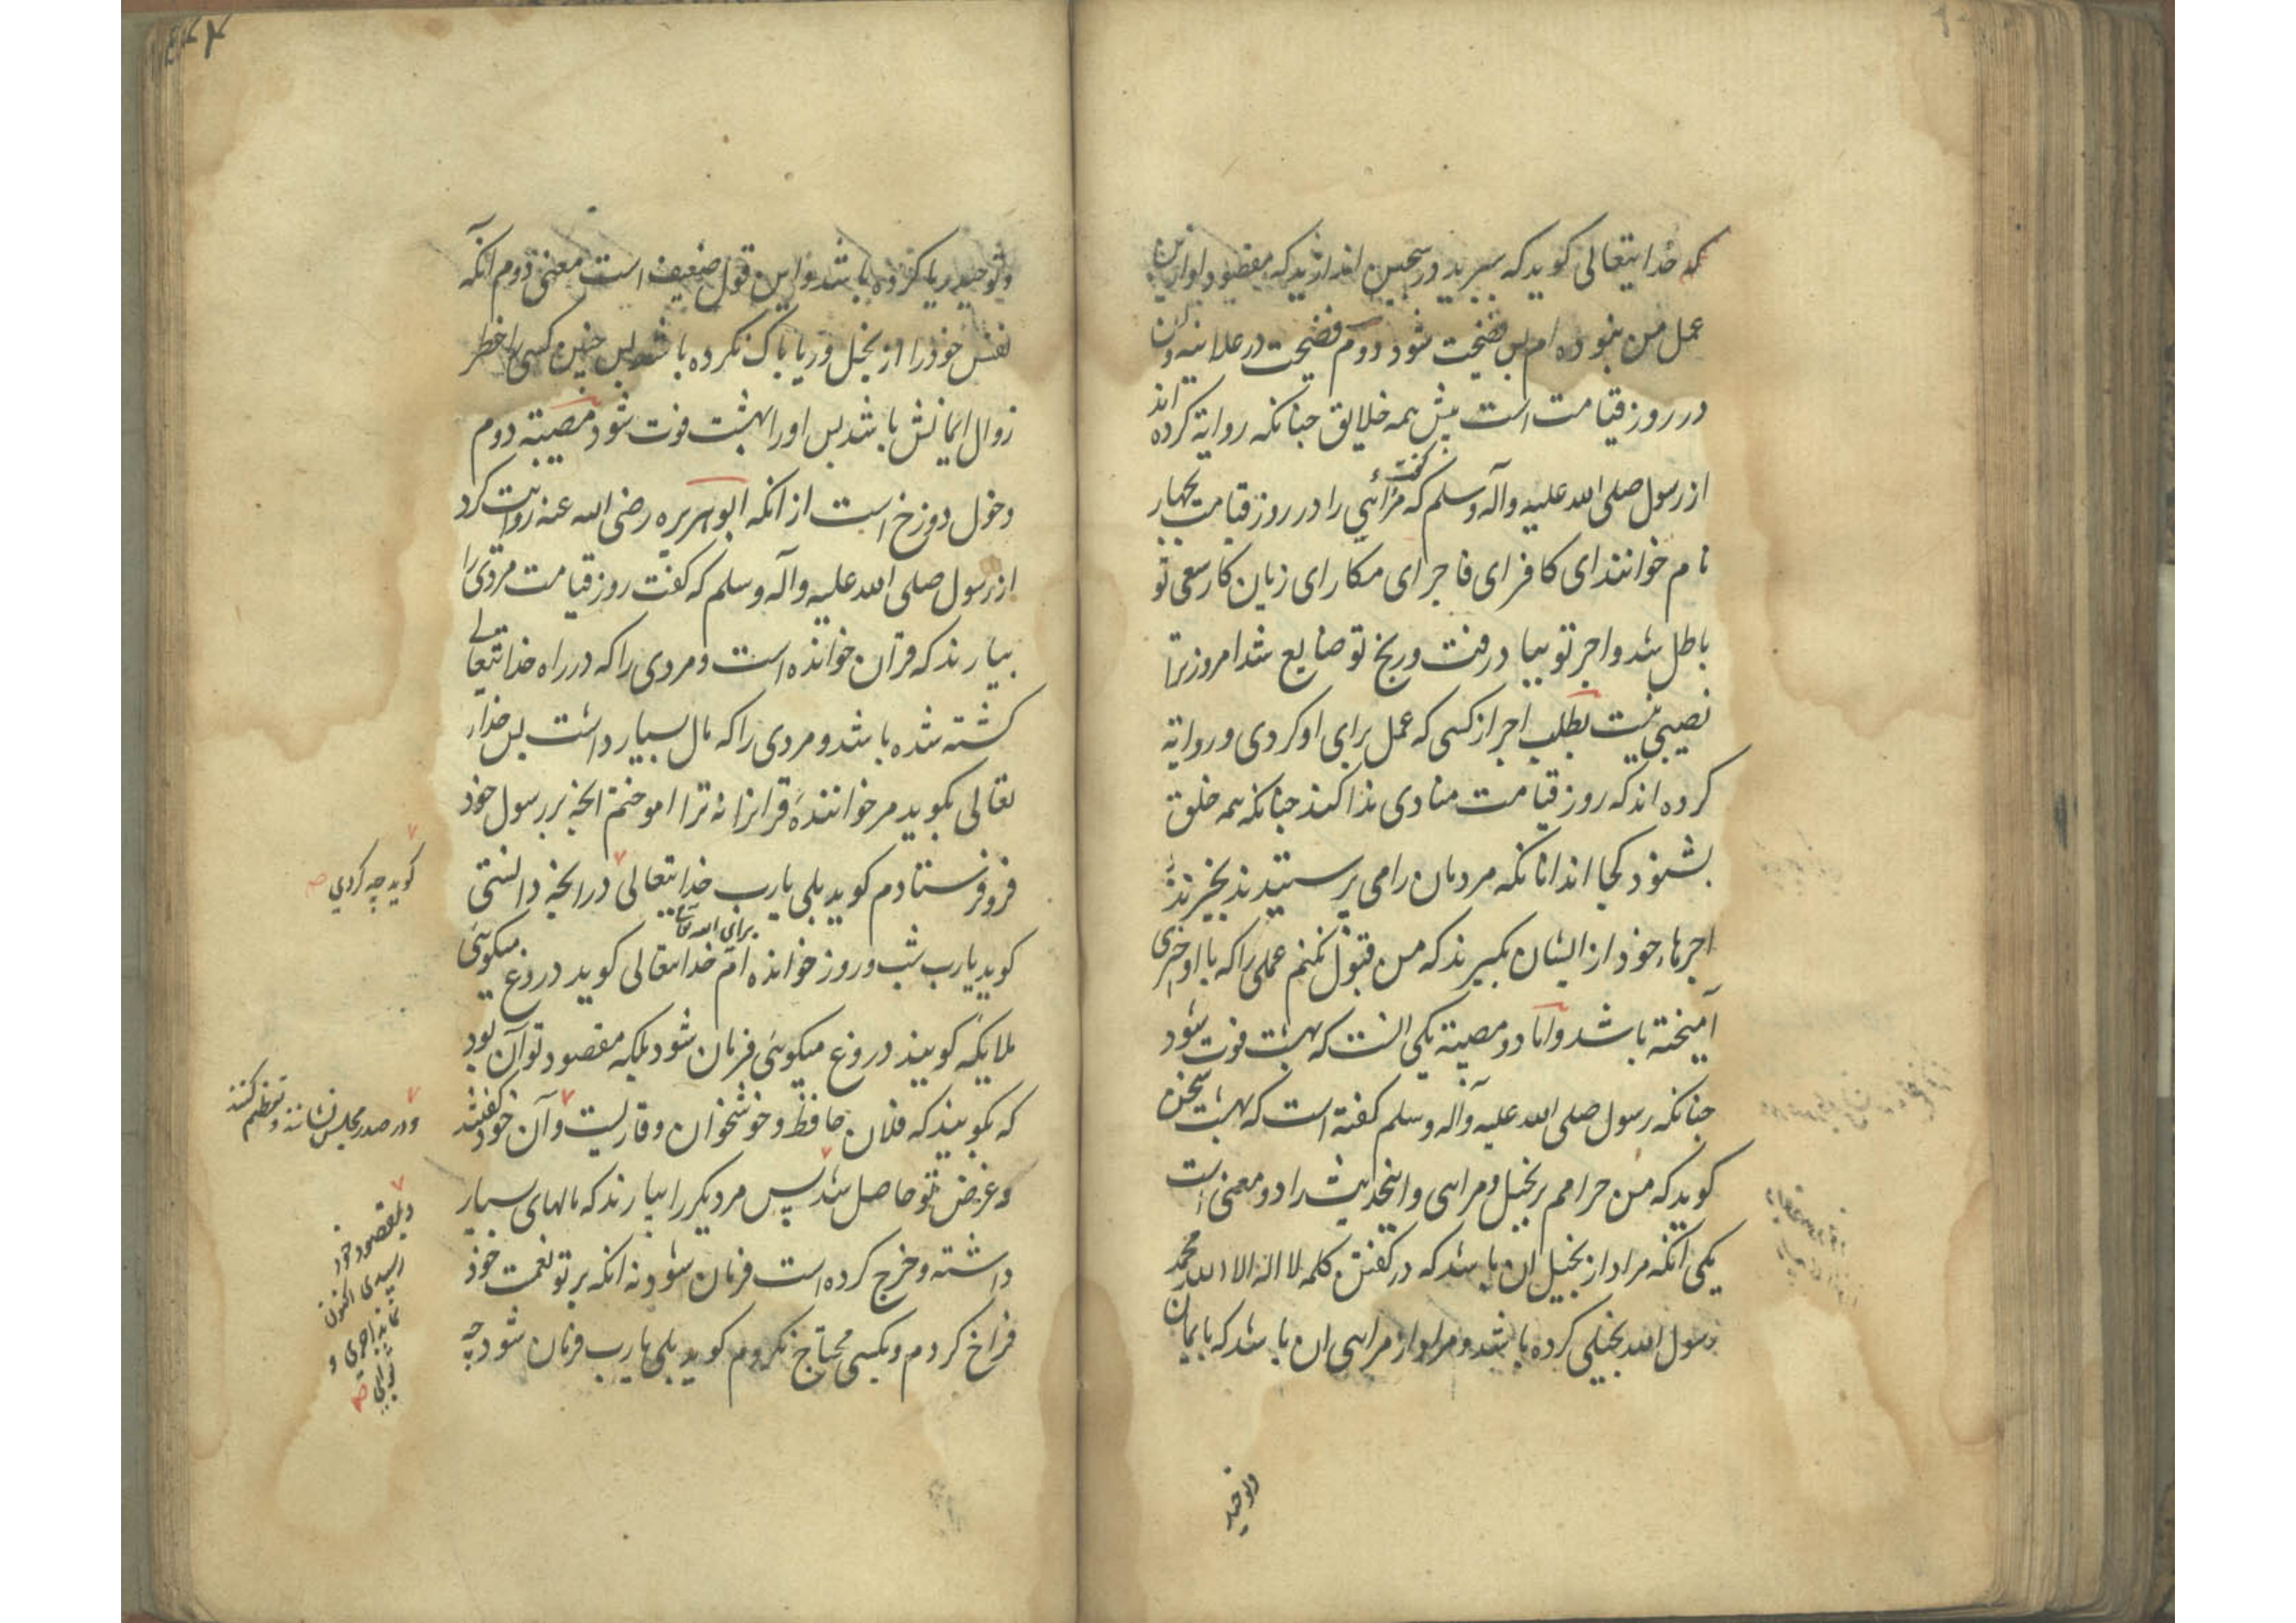 که خدایتعالی کوید که ببرید در سجین اندازید که مقصود او ازین
عمل من نبوده ام بس فضیحت شود دوم فضیحت در علانیه و آن
در روز قیامت است بیش همه خلایق جنانکه روایة کرده اند
از رسول صلی الله علیه وآله وسلم که کفت مرائی را در روز قیامت بجهار
نام خوانند ای کافر ای فاجر ای مکار ای زیان کار سعی تو
باطل شد و اجر تو بباد رفت و رنج تو ضایع شد امروز ترا
نصیبی نیست بطلب اجر از کسی که عمل برای او کردی و روایة
کرده اند که روز قیامت منادی ندا کند جنانکه همه خلق
بشنوند کجا اند انانکه مردمان را می پرستیدند بخیزند
اجرهاء خود از ایشان بکیرند که من قبول نکنم عملی را که با او جیزی
آمیخته باشد و اما دو مصیبة یکی انست که بهشت فوت شود
جنانکه رسول صلی الله علیه وآله وسلم کفته است که بهشت سخن
کوید که من حرامم بر بخیل و مرائی و اینحدیث را دو معنی است
یکی انکه مراد از بخیل ان باشد که در کفتن کلمه لا اله الا الله محمد
رسول الله بخیلی کرده باشد و مراد از مرائی ان باشد که بایمان
وتوحید
وتوحید ریا کرده باشد و این قول ضعیف است معنی دوم آنکه
نفس خود را از بخل و ریا پاک نکرده باشد بس جنین کسی را خطر
زوال ایمانش باشد بس او را بهشت فوت شود مصیبة دوم
دخول دوزخ است از انکه ابو هریره رضی الله عنه روایت کرد
از رسول صلی الله علیه وآله وسلم که کفت روز قیامت مردی را
بیارند که قرآن خوانده است و مردی را که در راه خدایتعالی
کشته شده باشد و مردی را که مال بسیار داشت بس خدای
تعالی بکوید مر خواننده قرانرا نه ترا اموختم انجه بر رسول خود
فرو فرستادم کوید بلی یارب خدایتعالی در انجه دانستی
کوید چه کردی صح
کوید یارب شب و روز خوانده ام برای الله تعالی خدایتعالی کوید دروغ میکوئی
ملایکه کویند دروغ میکوئی فرمان شود بلکه مقصود تو آن بود
که بکویند که فلان حافظ و خوشخوان و قاریست و آن خود کفتند
و در صدر مجلس نشانند و تعظیم کنند
و غرض تو حاصل شد پس مرد دیکر را بیارند که مالهای بسیار
و بمقصود خود
رسیدی اکنون
نماند اجری و
ثوابی صح
داشته و خرج کرده است فرمان شود نه انکه بر تو نعمت خود
فراخ کردم و بکسی محتاج نکردم کوید بلی یارب فرمان شود چه